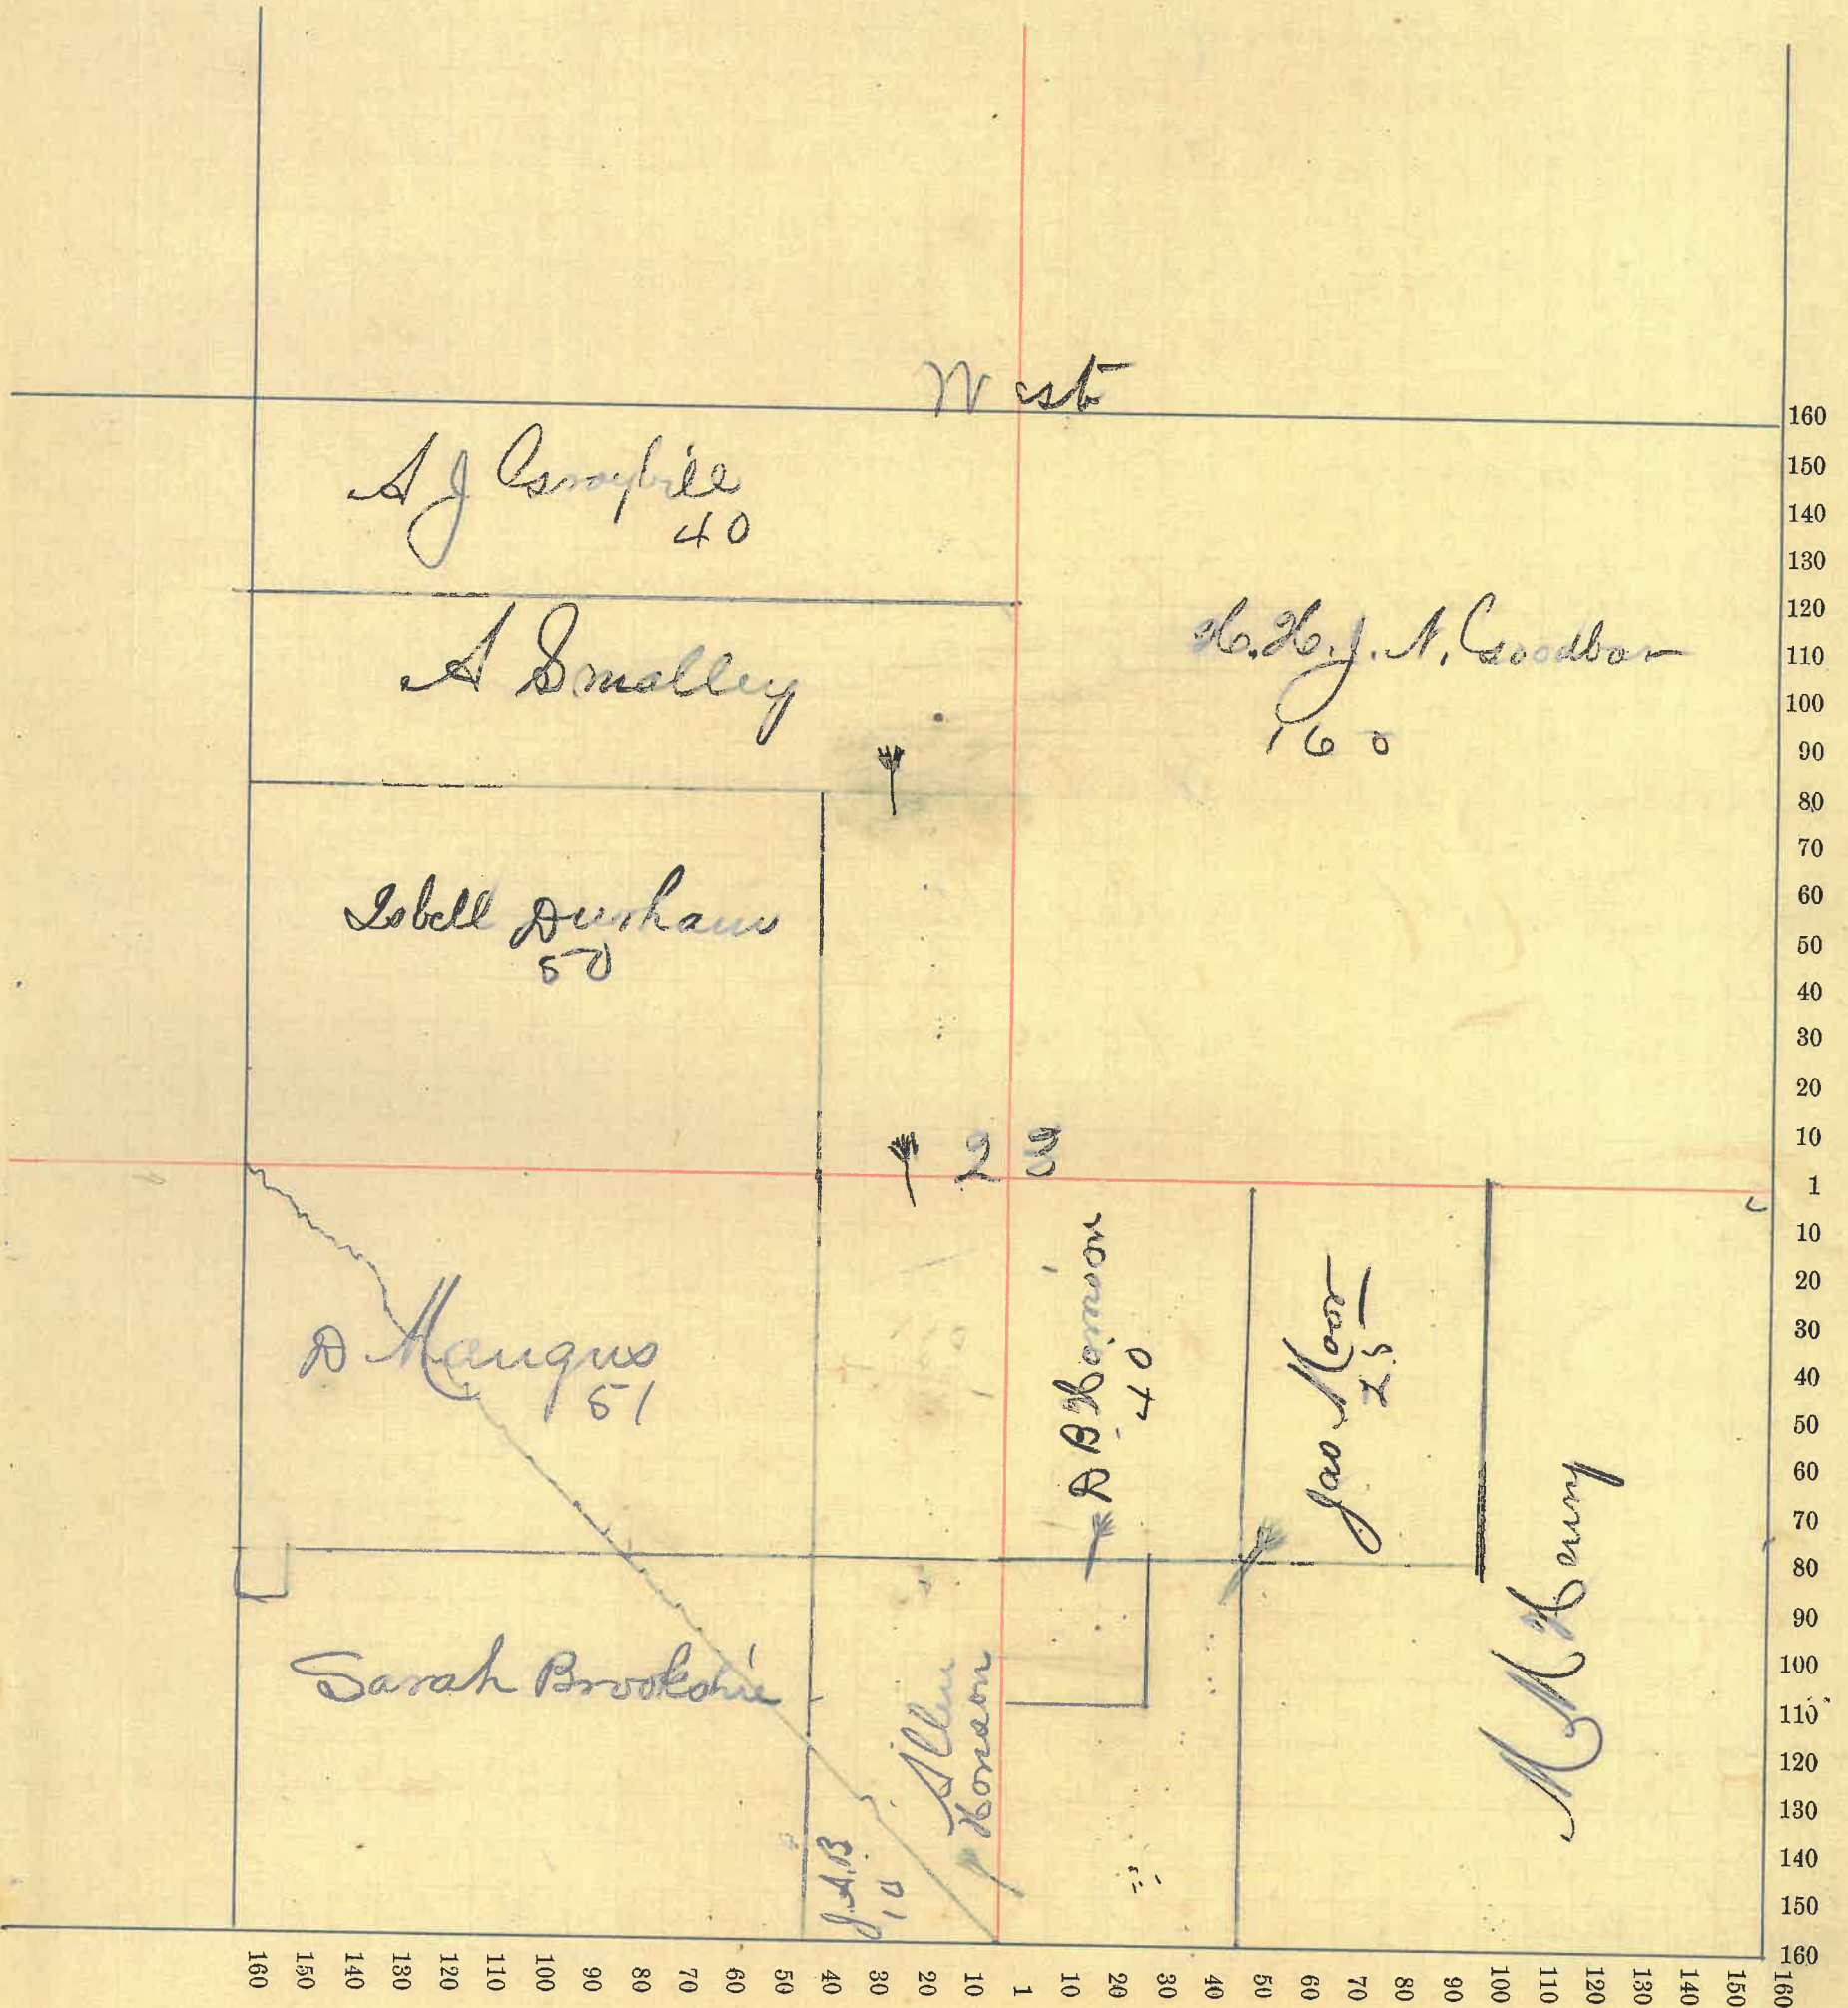 West
A J Graybill
40
A Smalley
H. H. J. N. Goodbar
160
Isbell Durham
50
23
D Mangus
51
D B Homison
40
Jas Moor
25
M M Henry
Sarah Brookshire
Allen
J.A.B
10
160
150
140
130
120
110
100
90
80
70
60
50
40
30
20
10
1
10
20
30
40
50
60
70
80
90
100
110
120
130
140
150
160
160 150 140 130 120 110 100 90 80 70 60 50 40 30 20 10 1 10 20 30 40 50 60 70 80 90 100 110 120 130 140 150 160